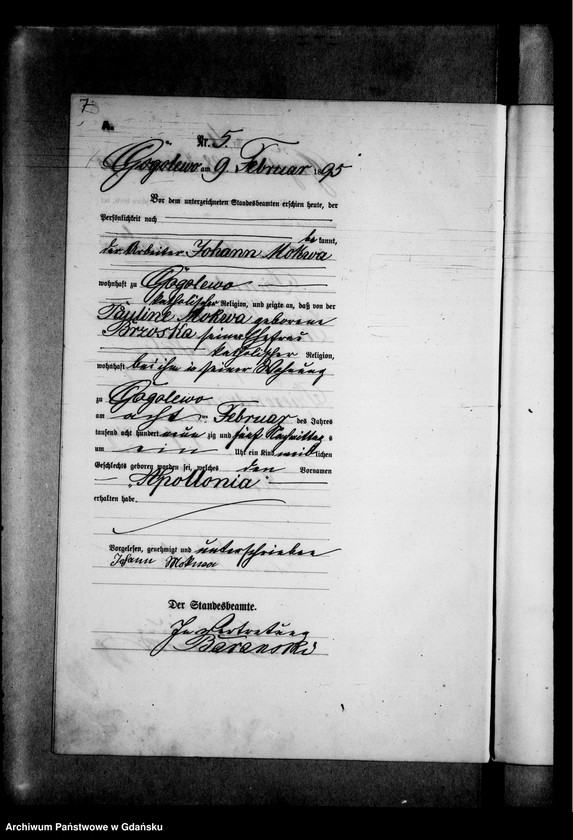 7
A.
Nr. 5
Gogolewo am 9 Februar 1895
Vor dem unterzeichneten Standesbeamten erschien heute, der
Persönlichkeit nach
be kannt,
der Arbeiter Johann Mokwa
wohnhaft zu Gogolewo
katholischer Religion, und zeigte an, daß von der
Pauline Mokwa geborene
Brzoska seiner Ehefrau
katholischer Religion,
wohnhaft bei ihm in seiner Wohnung
zu Gogolewo
am acht ten Februar des Jahres
tausend acht hundert neun zig und fünf Nachmittag s
um ein Uhr ein Kind weib lichen
Geschlechts geboren worden sei, welches den Vornamen
Apollonia
erhalten habe.
Vorgelesen, genehmigt und unterschrieben
Johann Mokwa
Der Standesbeamte.
In Vertretung
Baranski
Archiwum Państwowe w Gdańsku